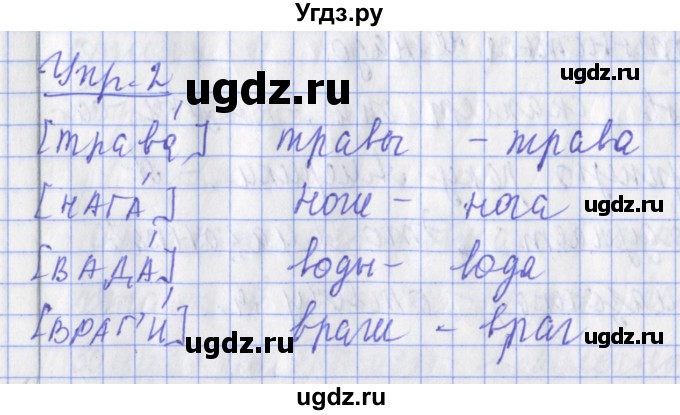 Угдз.ру
Упр. 2
[трава́] травы - трава
[НАГА́] ноги - нога
[ВАДА́] воды - вода
[ВРАГ'И́] враги - враг
ugdz.ru
ugdz.ru
ugdz.ru
ugdz.ru
ugdz.ru
ugdz.ru
ugdz.ru
ugdz.ru
ugdz.ru